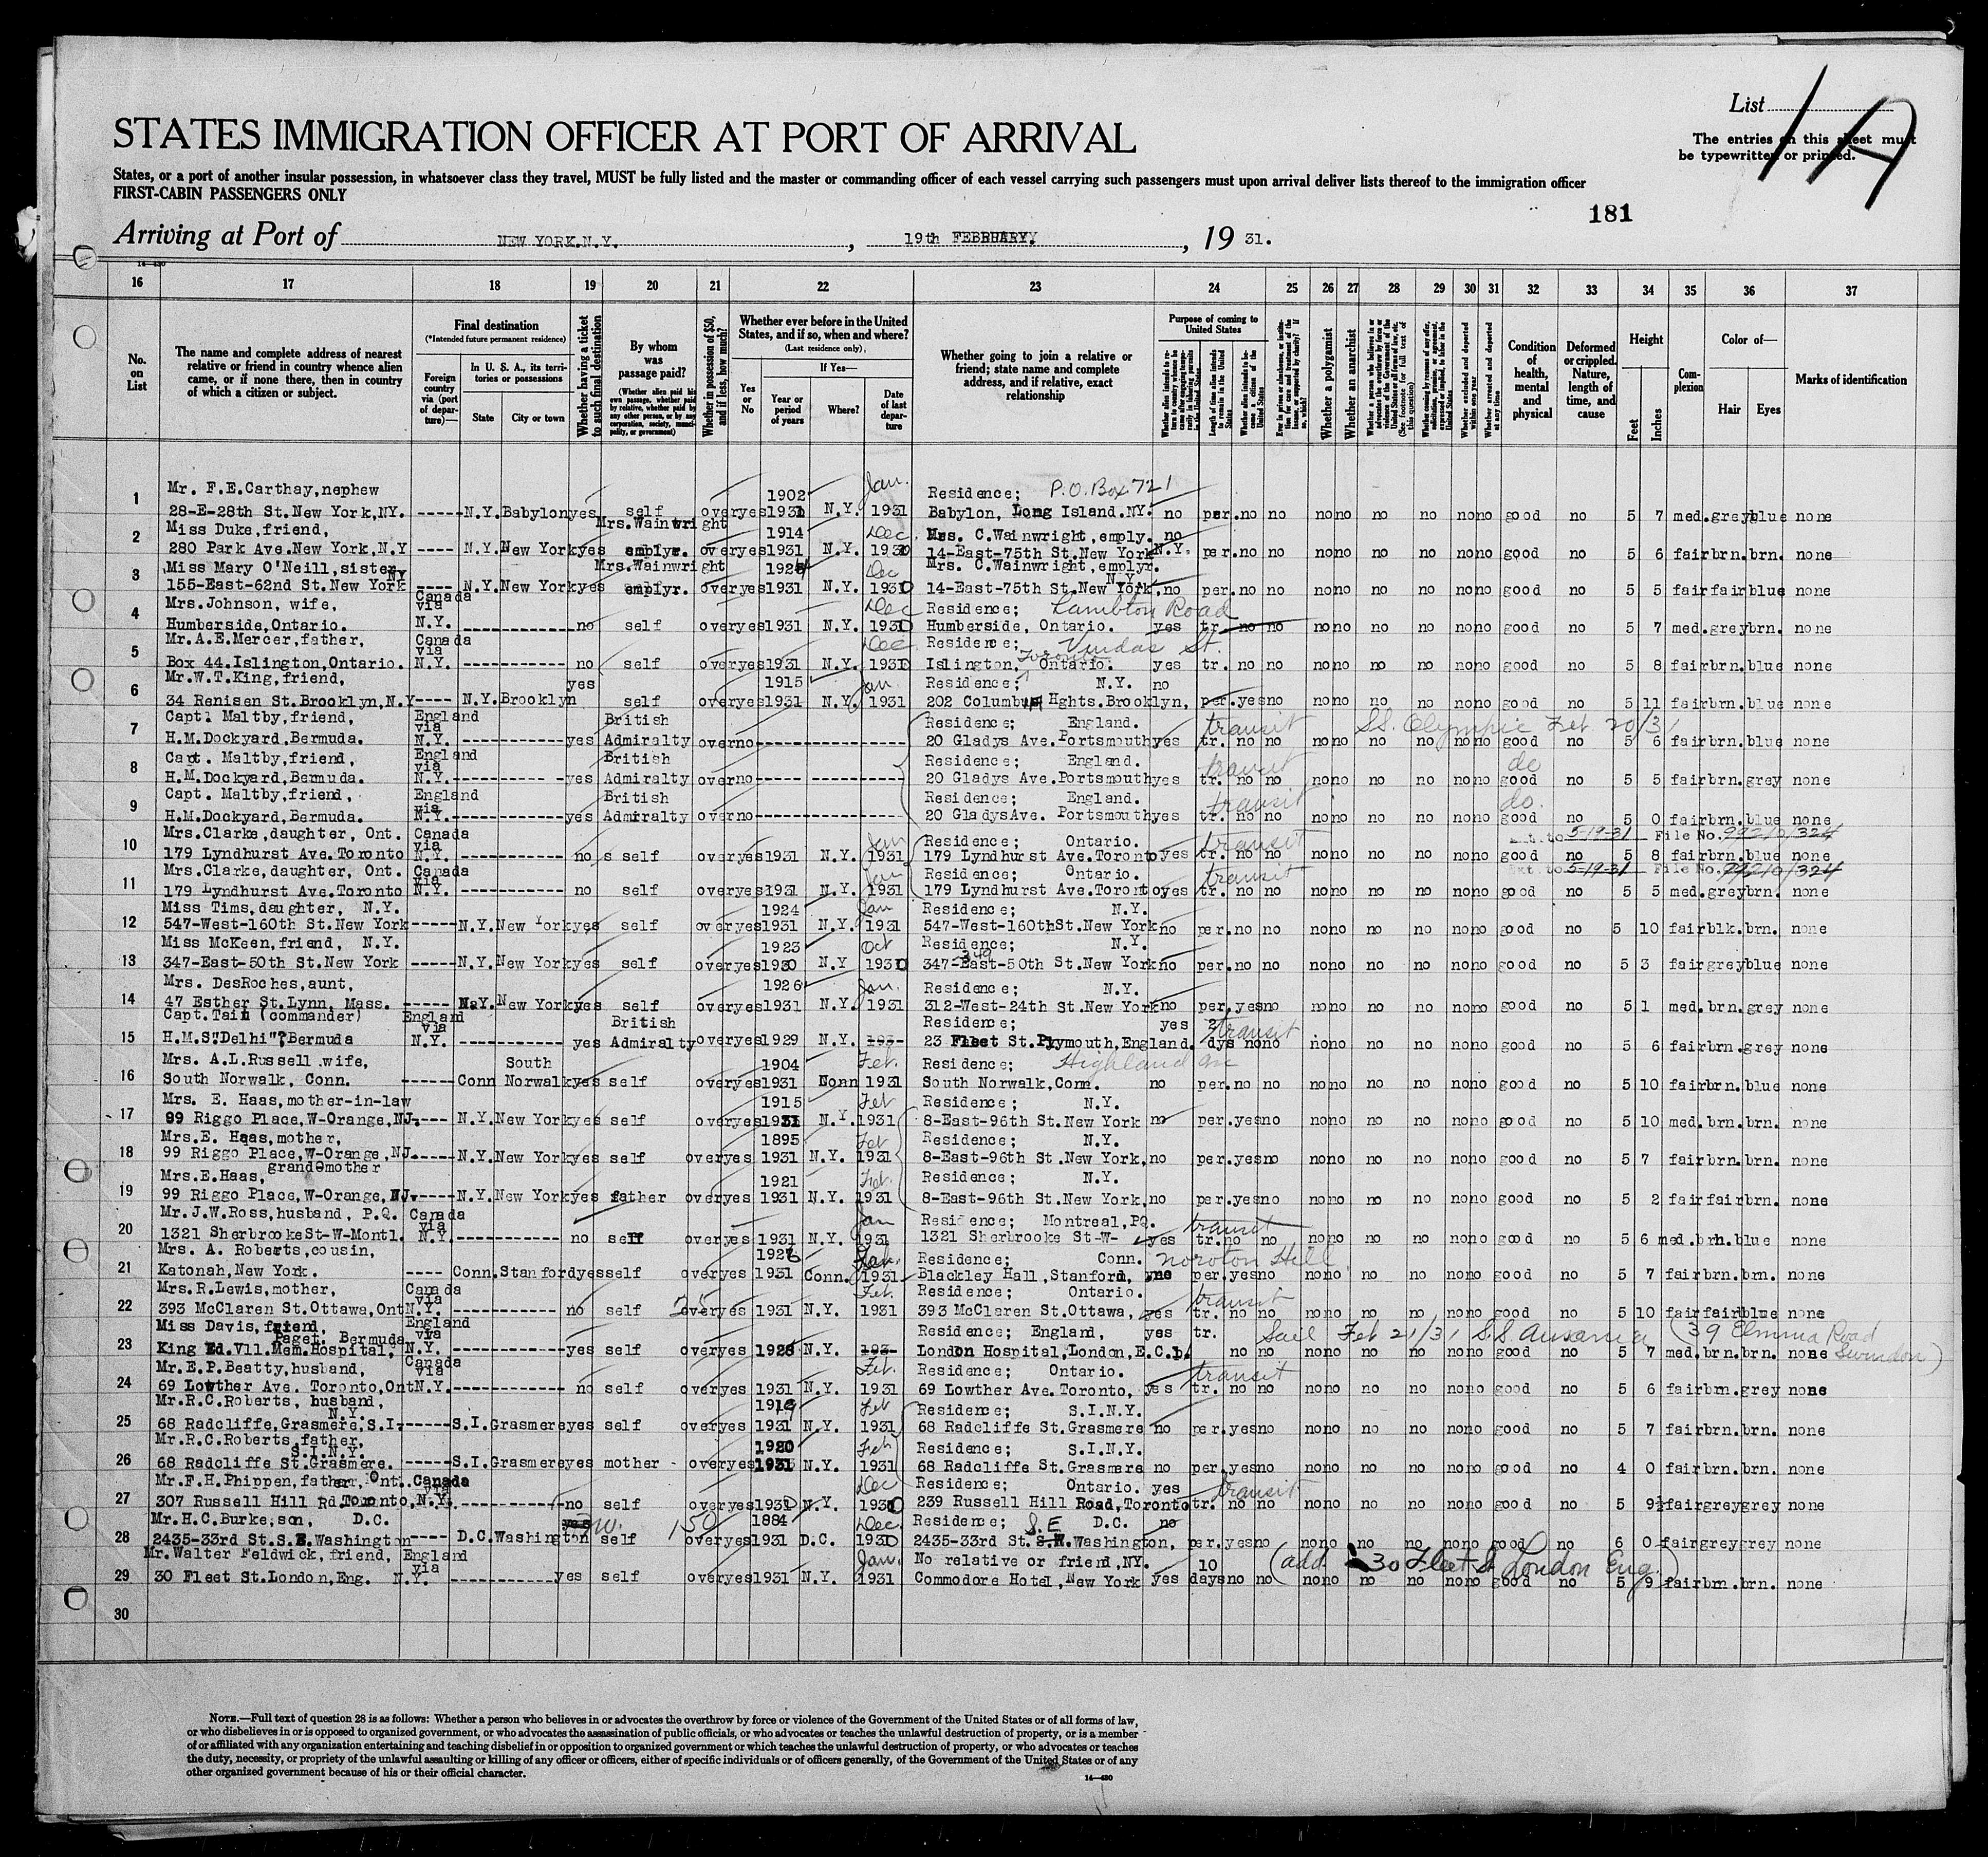 List 1A
STATES IMMIGRATION OFFICER AT PORT OF ARRIVAL
The entries on this sheet must
be typewritten or printed.
States, or a port of another insular possession, in whatsoever class they travel, MUST be fully listed and the master or commanding officer of each vessel carrying such passengers must upon arrival deliver lists thereof to the immigration officer
FIRST-CABIN PASSENGERS ONLY
181
Arriving at Port of NEW YORK.N.Y. , 19th FEBRUARY , 19 31.
14-430
16 17 18 19 20 21 22 23 24 25 26 27 28 29 30 31 32 33 34 35 36 37
No. on List
The name and complete address of nearest relative or friend in country whence alien came, or if none there, then in country of which a citizen or subject.
Final destination
(*Intended future permanent residence)
Foreign country via (port of departure)—
In U. S. A., its territories or possessions
State
City or town
Whether having a ticket to such final destination
By whom was passage paid?
(Whether alien paid his own passage, whether paid by relative, whether paid by any other person, or by any corporation, society, municipality, or government)
Whether in possession of $50, and if less, how much?
Whether ever before in the United States, and if so, when and where?
(Last residence only)
Yes or No
If Yes—
Year or period of years
Where?
Date of last departure
Whether going to join a relative or friend; state name and complete address, and if relative, exact relationship
Purpose of coming to United States
Length of time alien intends to remain in the United States
Whether alien intends to become a citizen of the United States
Whether a polygamist
Whether an anarchist
Whether excluded and deported within one year
Whether arrested and deported at any time
Condition of health, mental and physical
Deformed or crippled. Nature, length of time, and cause
Height
Feet
Inches
Complexion
Color of—
Hair
Eyes
Marks of identification
1 Mr. F.E.Carthay,nephew 1902 Jan. Residence; P.O.Box 721
28-E-28th St.New York,NY. -----N.Y.Babylon yes self over yes 1931 N.Y. 1931 Babylon, Long Island.NY. no per.no no no no no no no no good no 5 7 med.grey blue none
2 Miss Duke,friend, Mrs.Wainwright 1914 Dec. Mrs. C.Wainwright,emply. no
280 Park Ave.New York,N.Y ---- N.Y.New York yes emplyr. over yes 1931 N.Y. 1930 14-East-75th St.New York N.Y. per.no no no no no no no no good no 5 6 fair brn. brn. none
3 Miss Mary O'Neill,sister NY Mrs.Wainwright Dec Mrs. C.Wainwright,emplyr. N.Y.
155-East-62nd St.New York ---- N.Y.New York yes emplyr. over yes 1931 N.Y. 1930 14-East-75th St.New York, no per.no no no no no no no no good no 5 5 fair fair blue none
4 Mrs.Johnson, wife, Canada via Dec Residence; Lambton Road
Humberside,Ontario. N.Y. ------------- no self over yes 1931 N.Y. 1930 Humberside, Ontario. yes tr. no no no no no no no no good no 5 7 med. grey brn. none
5 Mr.A.E.Mercer,father, Canada via Dec. Residence; St.
Box 44.Islington,Ontario. N.Y. ----------- no self over yes 1931 N.Y. 1930 Islington, Toronto Ontario. yes tr. no no no no no no no no good no 5 8 fair brn. blue none
6 Mr.W.T.King,friend, yes 1915 Jan. Residence; N.Y. no
34 Renisen St.Brooklyn,N.Y---- N.Y.Brooklyn self over yes 1931 N.Y. 1931 202 Columbia Hghts.Brooklyn, per.yes no no no no no no no good no 5 11 fair brn. blue none
7 Capt. Maltby,friend, England via British Residence; England. transit SS. Olympic Feb 20/31
H.M.Dockyard,Bermuda. N.Y. ----------- yes Admiralty over no --------------- 20 Gladys Ave.Portsmouth yes tr. no no no no no no no no good no 5 6 fair brn. blue none
8 Capt. Maltby,friend, England via British Residence; England. transit do
H.M.Dockyard,Bermuda. N.Y.----------- yes Admiralty over no --------------- 20 Gladys Ave.Portsmouth yes tr. no no no no no no no no good no 5 5 fair brn. grey none
9 Capt. Maltby,friend, England via British Residence; England. transit do.
H.M.Dockyard,Bermuda. N.Y.----------- yes Admiralty over no --------------- 20 Gladys Ave. Portsmouth yes tr. no no no no no no no no good no 5 0 fair brn. blue none
10 Mrs.Clarke,daughter, Ont. Canada via Jan Residence; Ontario. transit Ext. to 5-19-31 File No. 99210/324
179 Lyndhurst Ave.Toronto N.Y. ----------- no s self over yes 1931 N.Y. 1931 179 Lyndhurst Ave.Toronto yes tr. no no no no no no no no good no 5 8 fair brn. blue none
11 Mrs.Clarke,daughter, Ont. Canada via Jan Residence; Ontario. transit Ext. to 5-19-31 File No. 99210/324
179 Lyndhurst Ave.Toronto N.Y. ----------- no self over yes 1931 N.Y. 1931 179 Lyndhurst Ave.Toronto yes tr. no no no no no no no no good no 5 5 med.grey brn. none
12 Miss Tims,daughter, N.Y. 1924 Jan Residence; N.Y.
547-West-160th St.New York-----N.Y.New York yes self over yes 1931 N.Y. 1931 547-West-160thSt.New York no per.no no no no no no no no good no 5 10 fair blk. brn. none
13 Miss McKeen,friend, N.Y. 1923 Oct Residence; N.Y.
347-East-50th St.New York -----N.Y.New York yes self over yes 1930 N.Y 1930 347-East-50th St.New York 349 no per.no no no no no no no no good no 5 3 fair grey blue none
14 Mrs. DesRoches,aunt, 1926 Jan. Residence; N.Y.
47 Esther St.Lynn, Mass. ----- N.Y.New York yes self over yes 1931 N.Y. 1931 312-West-24th St.New York no per.yes no no no no no no no good no 5 1 med. brn. grey none
15 Capt.Tain (commander) England via British Residence; yes 2 transit
H.M.S."Delhi", Bermuda N.Y. ----------- yes Admiralty over yes 1929 N.Y. 193- 23 Fleet St.Plymouth,England. dys no no no no no no no no good no 5 6 fair brn. grey none
16 Mrs. A.L.Russell,wife, South 1904 Feb. Residence; Highland Ave
South Norwalk, Conn. ------Conn Norwalk yes self over yes 1931 Conn 1931 South Norwalk,Conn. no per.no no no no no no no no good no 5 10 fair brn. blue none
17 Mrs. E. Haas,mother-in-law 1915 Feb Residence; N.Y.
99 Riggo Place,W-Orange,NJ.---- N.Y.New York yes self over yes 1931 N.Y. 1931 8-East-96th St.New York no per.yes no no no no no no no good no 5 10 med. brn. brn. none
18 Mrs.E. Haas,mother, 1895 Feb Residence; N.Y.
99 Riggo Place,W-Orange,NJ.-----N.Y.New York yes self over yes 1931 N.Y. 1931 8-East-96th St.New York, no per.yes no no no no no no no good no 5 7 fair brn. brn. none
19 Mrs.E.Haas, grandmother 1921 Feb. Residence; N.Y.
99 Riggo Place,W-Orange,NJ.-----N.Y.New York yes father over yes 1931 N.Y. 1931 8-East-96th St.New York, no per.yes no no no no no no no good no 5 2 fair fair brn. none
20 Mr.J.W.Ross,husband, P.Q. Canada via Jan Residence; Montreal,PQ. transit
1321 SherbrookeSt-W-Montl. N.Y.------------ no self over yes 1931 N.Y. 1931 1321 Sherbrooke St-W- yes tr.no no no no no no no no good no 5 6 med. brn. blue none
21 Mrs. A. Roberts,cousin, Jan. Residence; Conn. Noroton Hill
Katonah,New York. ---- Conn.Stanford yes self over yes 1931 Conn. 1931 Blackley Hall,Stanford, no per.yes no no no no no no no good no 5 7 fair brn. brn. none
22 Mrs.R.Lewis,mother, Canada via Feb. Residence; Ontario. transit
393 McClaren St.Ottawa,Ont N.Y. ----------- no self over yes 1931 N.Y. 1931 393 McClaren St.Ottawa, yes tr. no no no no no no no no good no 5 10 fair fair blue none
23 Miss Davis,friend, Paget. Bermuda England via Residence; England, yes tr. Sail Feb 21/31 S.S. Ausonia (39 Elmina Road Swindon)
King Ed.Vll.Mem.Hospital, N.Y. ----------- yes self over yes 1928 N.Y. 193- London Hospital,London,E.C.1. no no no no no no no no good no 5 7 med. brn. brn. none
24 Mr.E.P.Beatty,husband, Canada via Feb. Residence; Ontario. transit
69 Lowther Ave. Toronto,Ont N.Y.------------- no self over yes 1931 N.Y. 1931 69 Lowther Ave.Toronto, yes tr. no no no no no no no no good no 5 6 fair brn. grey none
25 Mr.R.C.Roberts, husband, N.Y. 1919 Feb Residence; S.I.N.Y.
68 Radcliffe,Grasmere,S.I,------S.I.Grasmere yes self over yes 1931 N.Y. 1931 68 Radcliffe St.Grasmere no per.yes no no no no no no no good no 5 7 fair brn. brn. none
26 Mr.R.C.Roberts,father, S.I.N.Y. 1920 Feb Residence; S.I.N.Y.
68 Radcliffe St.Grasmere. -----S.I.Grasmere yes mother over yes 1931 N.Y. 1931 68 Radcliffe St.Grasmere no per.yes no no no no no no no good no 4 0 fair brn. brn. none
27 Mr.F.H.Phippen,father, Ont. Canada via Dec Residence; Ontario. yes transit
307 Russell Hill Rd.Toronto,N.Y.------------- no self over yes 1930 N.Y. 1930 239 Russell Hill Road,Toronto tr. no no no no no no no no good no 5 9½ fair grey grey none
28 Mr.H.C.Burke,son, D.C. yes 150 1884 Dec. Residence; S.E D.C. no
2435-33rd St.S.E.Washington---- D.C.Washington self over yes 1931 D.C. 1930 2435-33rd St. Washington, per.yes no no no no no no no good no 6 0 fair grey grey none
29 Mr.Walter Feldwick,friend, England via Jan. No relative or friend,NY. 10 (add. 30 Fleet St London Eng.)
30 Fleet St.London,Eng. N.Y. ------------ yes self over yes 1931 N.Y. 1931 Commodore Hotel,New York yes days no no no no no no no no good no 5 9 fair brn. brn. none
30
NOTE.—Full text of question 28 is as follows: Whether a person who believes in or advocates the overthrow by force or violence of the Government of the United States or of all forms of law,
or who disbelieves in or is opposed to organized government, or who advocates the assassination of public officials, or who advocates or teaches the unlawful destruction of property, or is a member
of or affiliated with any organization entertaining and teaching disbelief in or opposition to organized government or which teaches the unlawful destruction of property, or who advocates or teaches
the duty, necessity, or propriety of the unlawful assaulting or killing of any officer or officers, either of specific individuals or of officers generally, of the Government of the United States or of any
other organized government because of his or their official character.
14-430